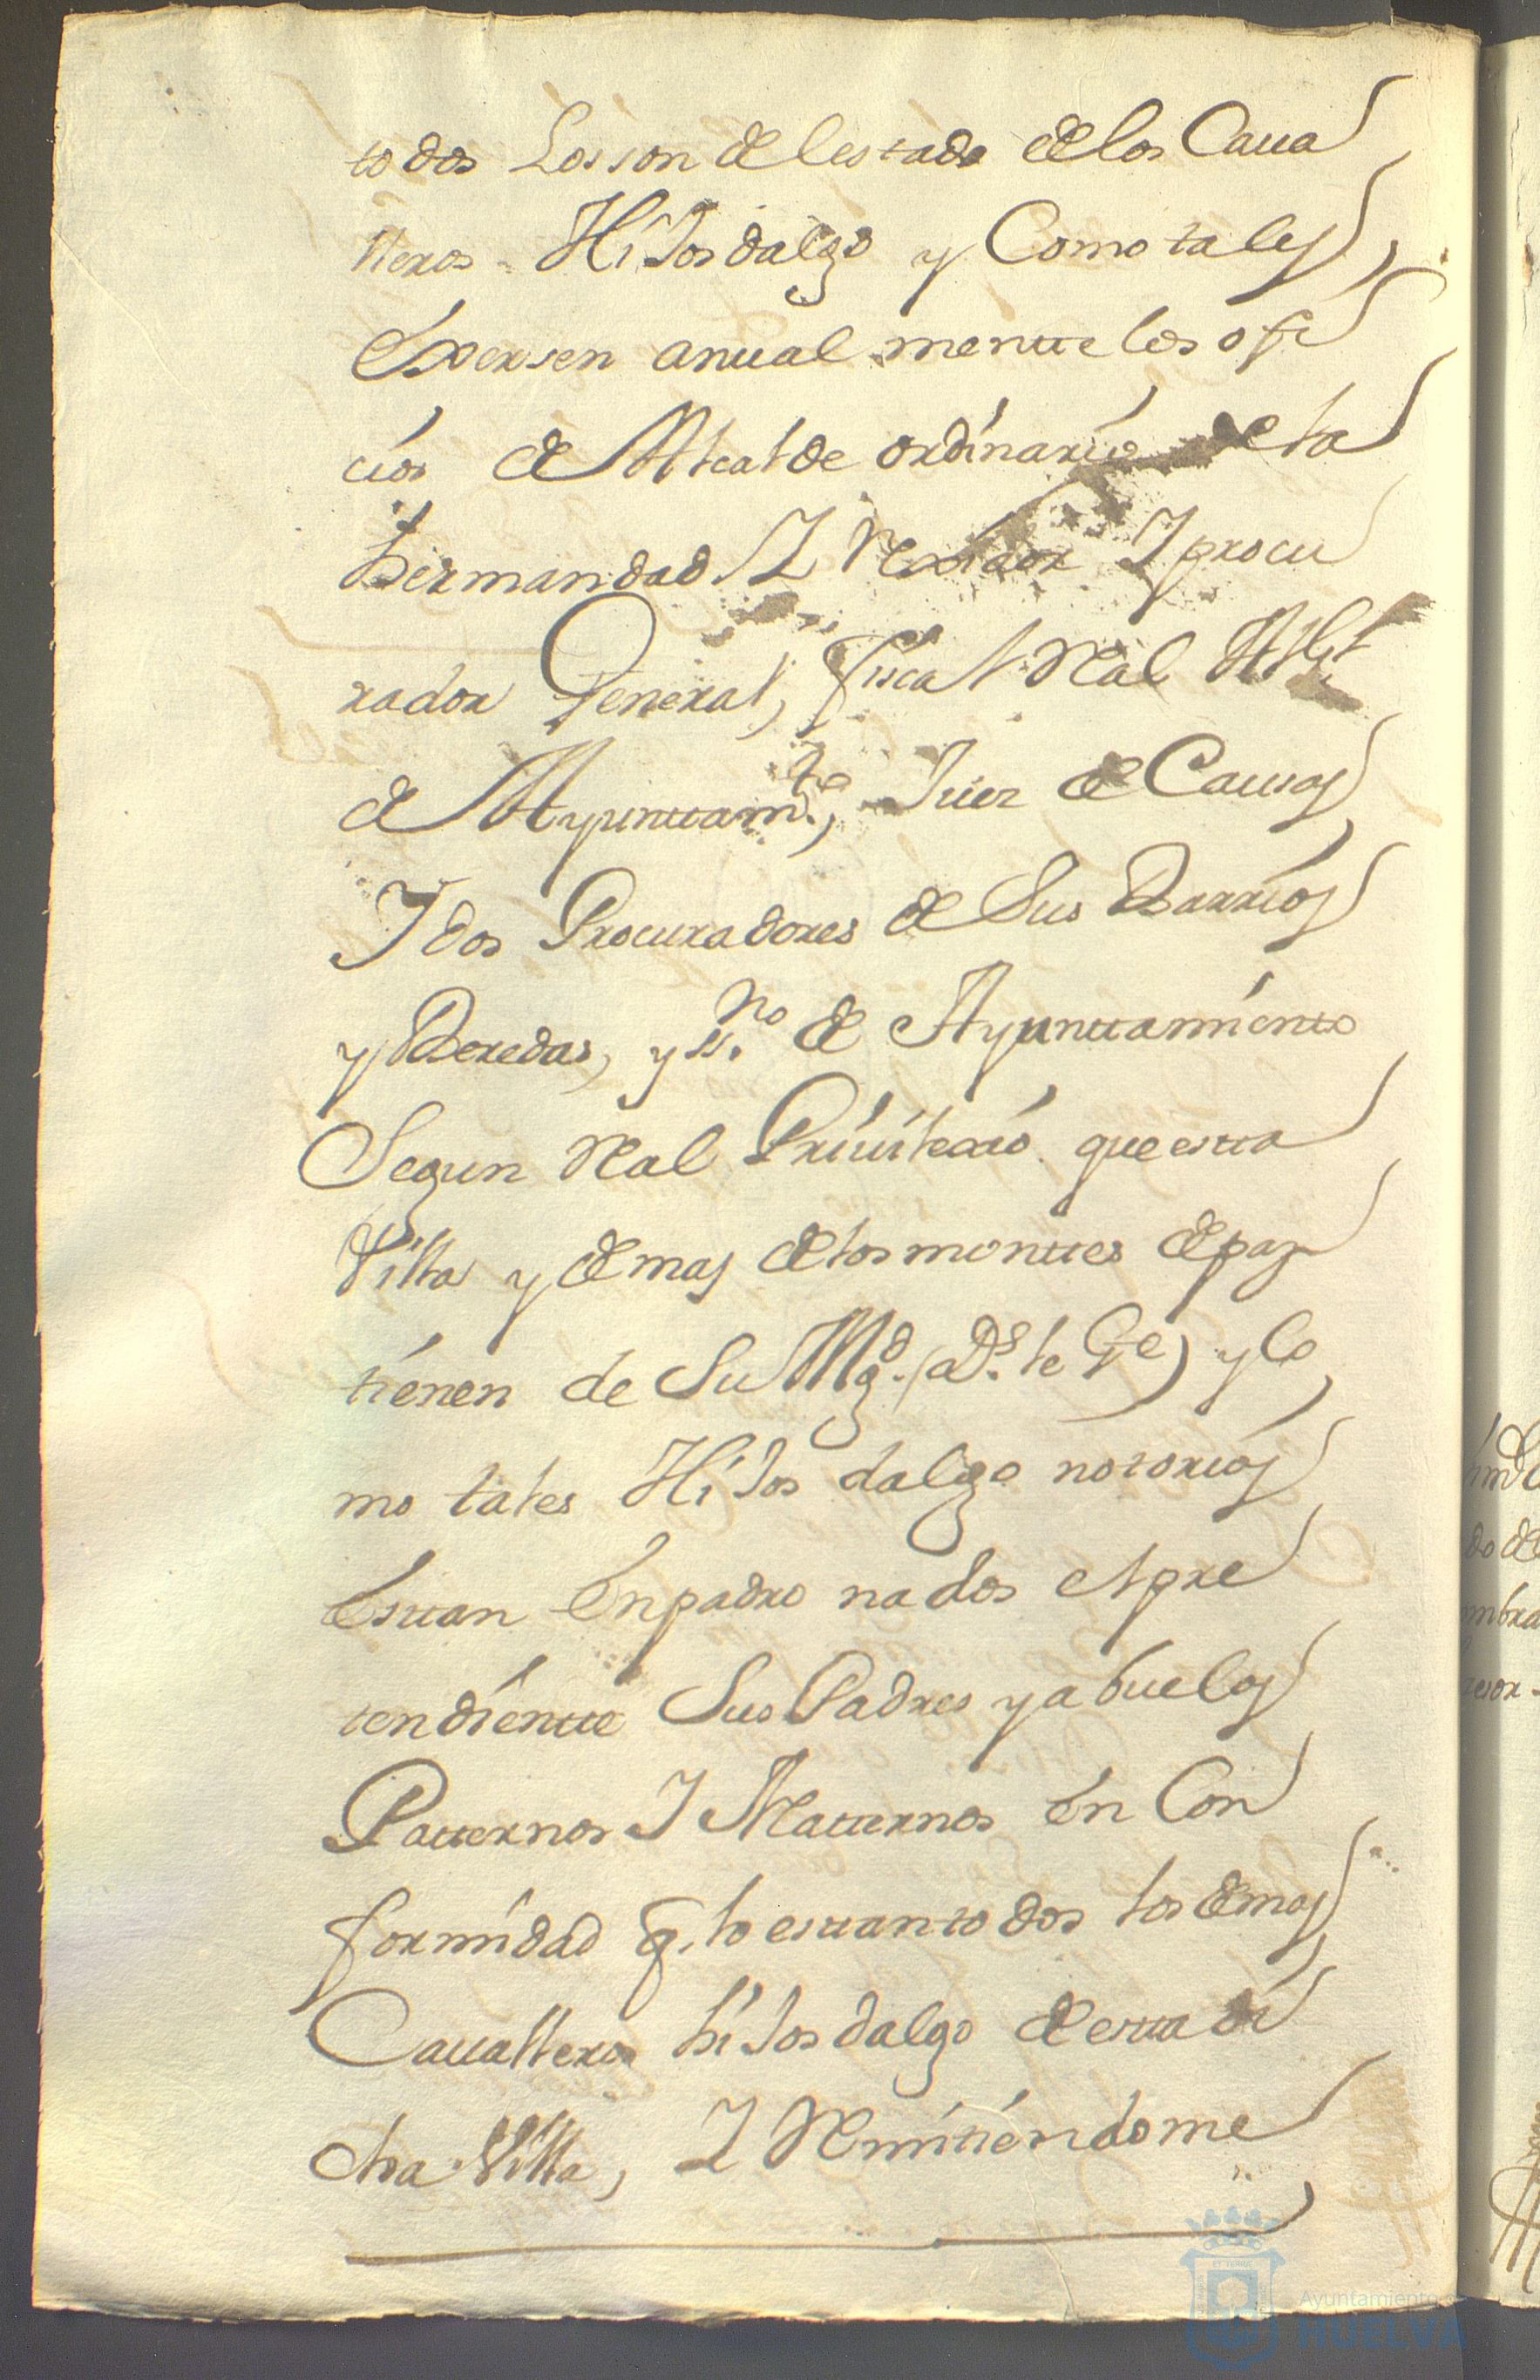 todos Los son del estado de los Caua
lleros Hi Josdalgo y Como tales
Exersen anual mente los ofi
cios de Alcalde ordinario de la
hermandad I Rexidor I procu
rador General, fiscal Real Algl
de Ayuntam.to, Juez de Causas
I dos Procuradores de Sus Barrios
y Beredas, y ss.no de Ayuntamiento
Segun Real Priuilexio que esta
Villa y demas de los montes de paz
tienen de Su Mg.d (D.s le G.e) y Co
mo tales Hi Jos dalgo notorios
Estan Enpadronados el pre
tendiente Sus Padres y abuelos
Paternos I Maternos En Con
formidad q. lo estan todos los demas
Caualleros hi Jos dalgo de esta di
cha Villa, I Remitiendome
do de
mbra
Ayuntamiento
HUELVA